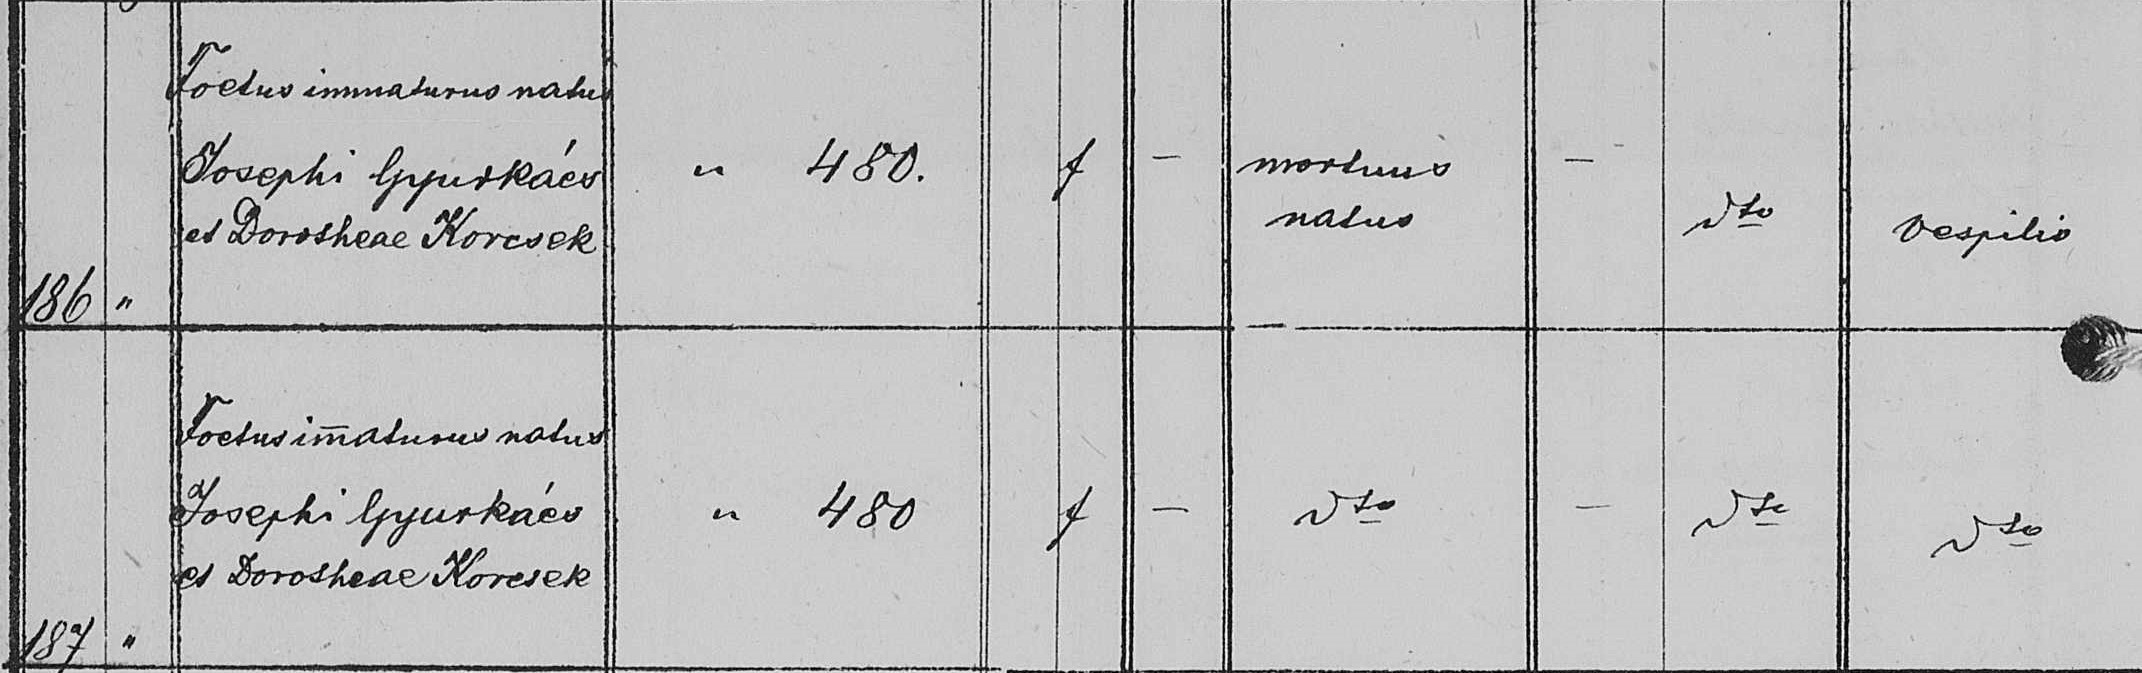 Foetus immaturus natus
Josephi Gyurkács
et Dorotheae Korcsek
186 "
" 480.
f
—
mortuus
natus
—
dto
vespilio
Foetus im̄aturus natus
Josephi Gyurkács
et Dorotheae Korcsek
187 "
" 480
f
—
dto
—
dto
dto